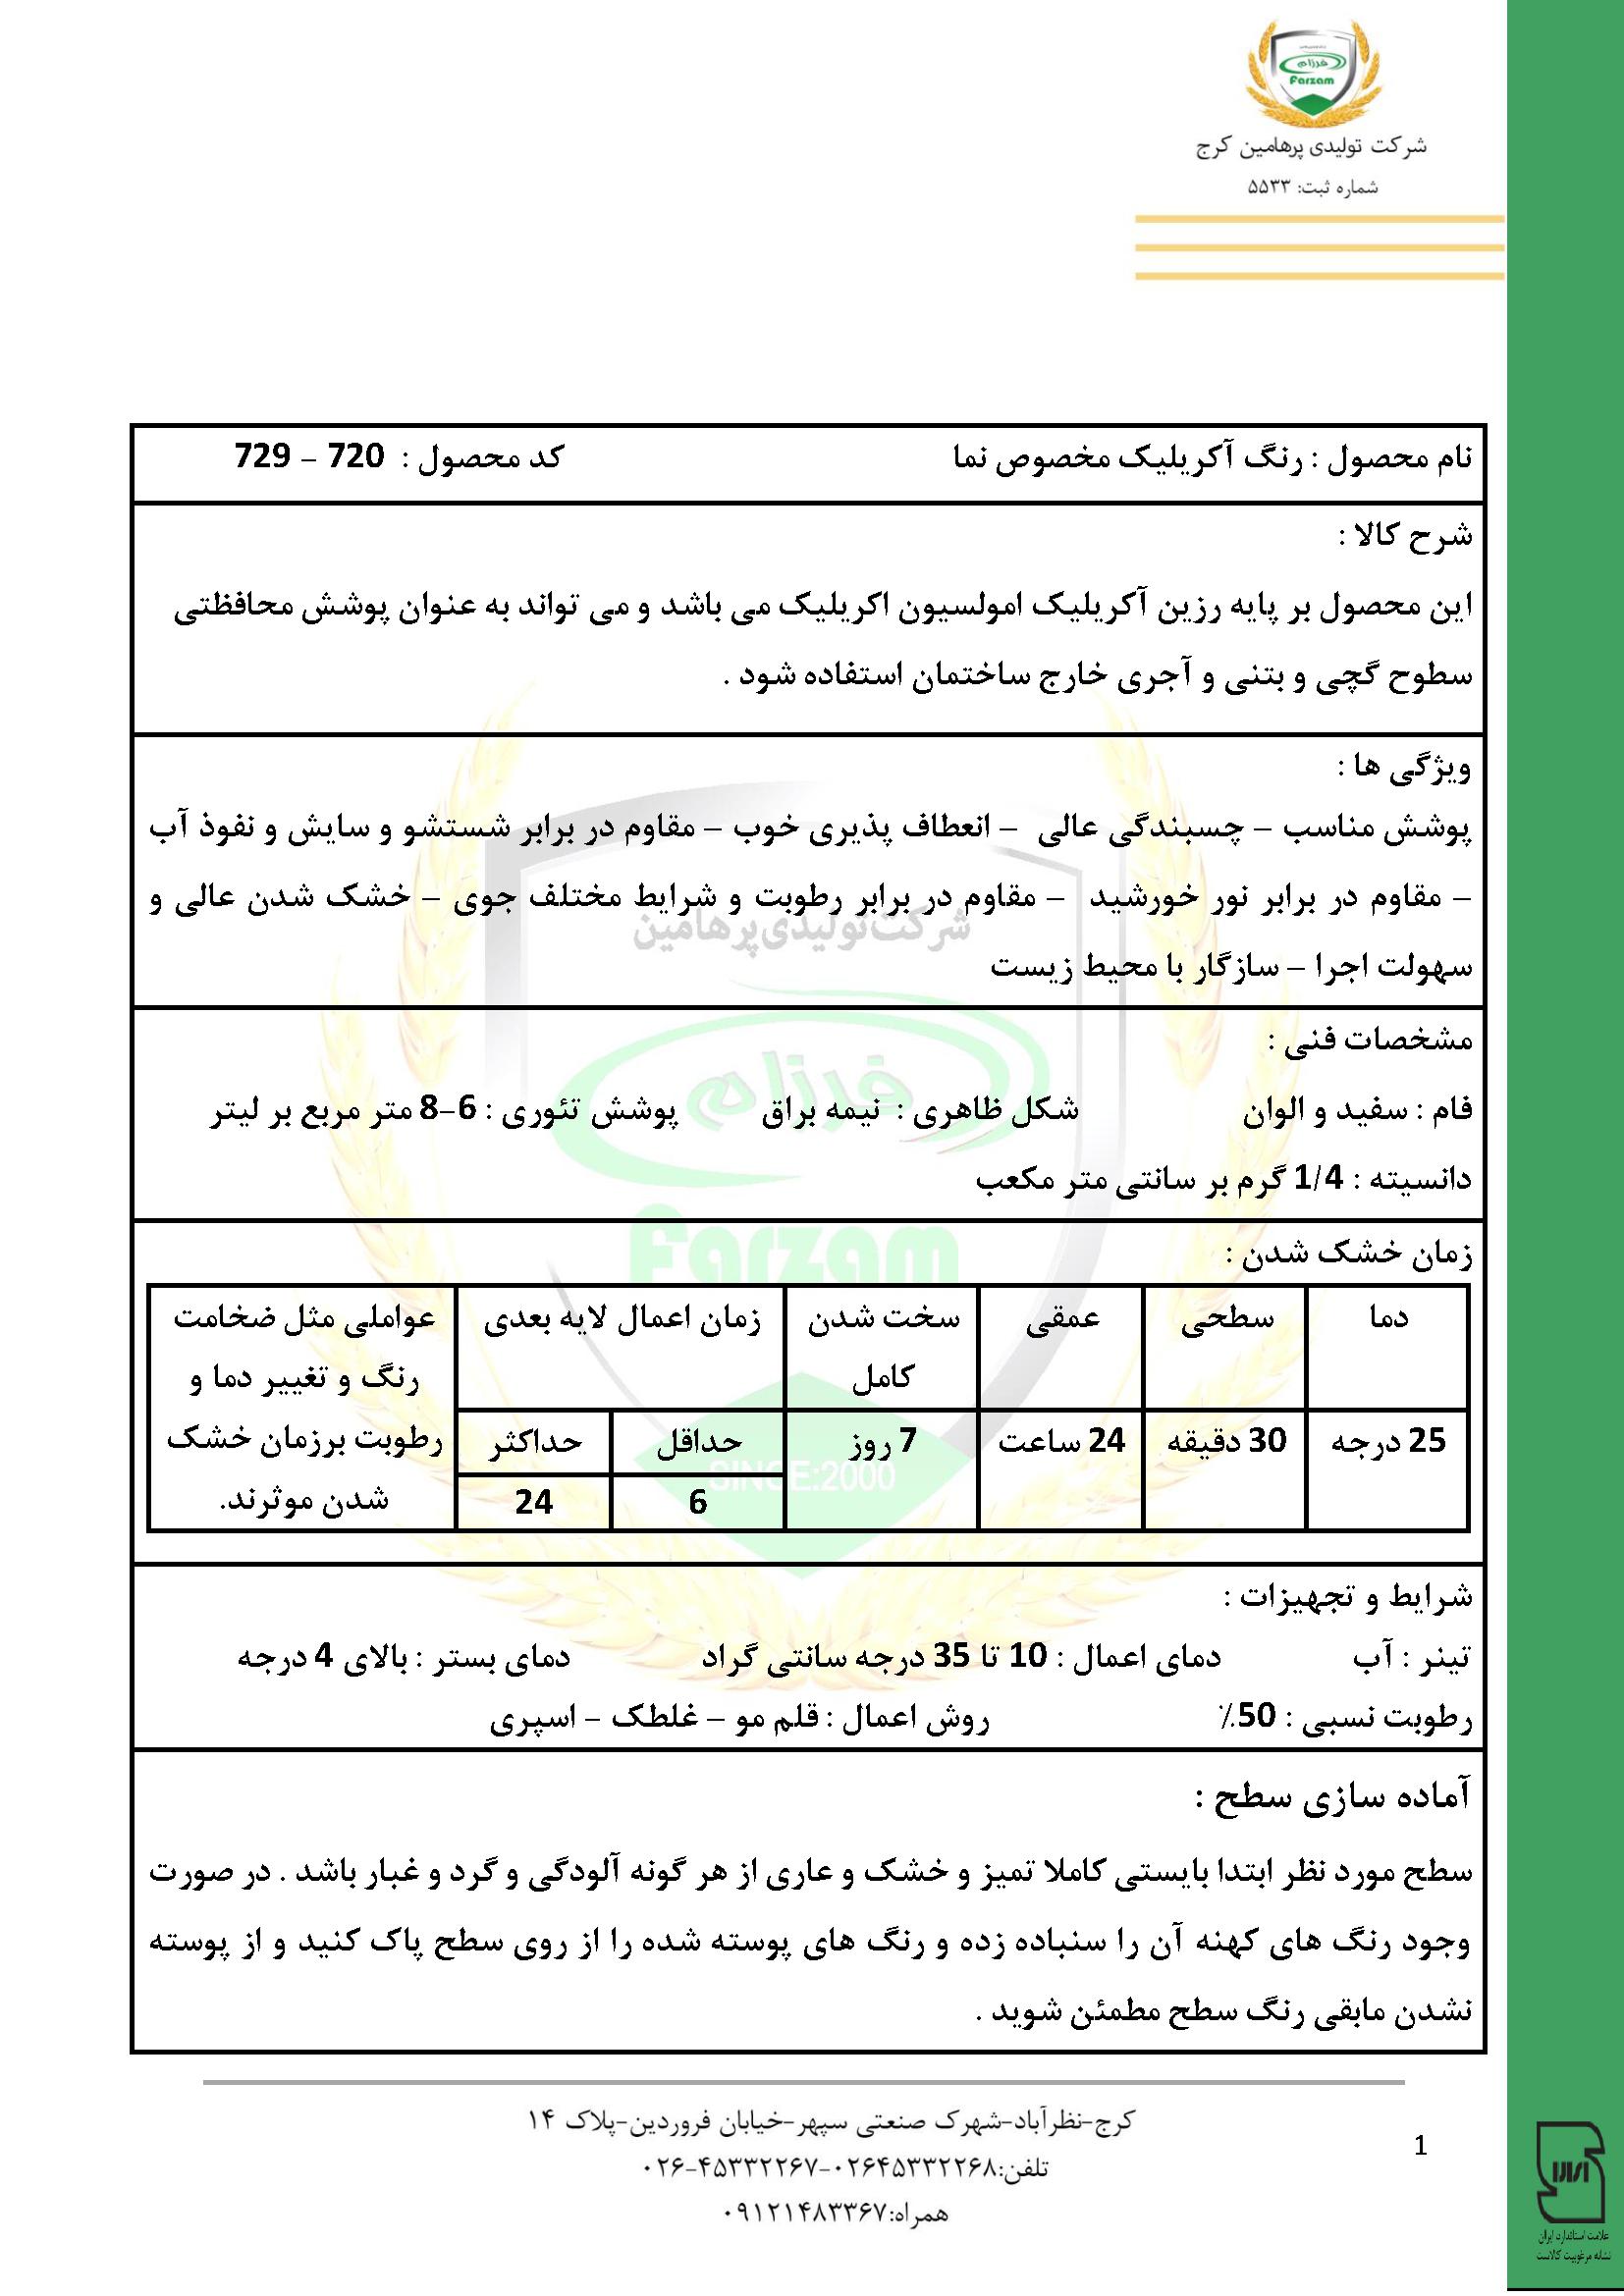 فرزام
Farzam
شرکت تولیدی پرهامین کرج
شماره ثبت: ۵۵۳۳
نام محصول : رنگ آکریلیک مخصوص نما کد محصول : 720 – 729
شرح کالا :
این محصول بر پایه رزین آکریلیک امولسیون اکریلیک می باشد و می تواند به عنوان پوشش محافظتی
سطوح گچی و بتنی و آجری خارج ساختمان استفاده شود .
ویژگی ها :
پوشش مناسب – چسبندگی عالی – انعطاف پذیری خوب – مقاوم در برابر شستشو و سایش و نفوذ آب
– مقاوم در برابر نور خورشید – مقاوم در برابر رطوبت و شرایط مختلف جوی – خشک شدن عالی و
سهولت اجرا – سازگار با محیط زیست
شرکت تولیدی پرهامین
مشخصات فنی :
فام : سفید و الوان شکل ظاهری : نیمه براق پوشش تئوری : 6–8 متر مربع بر لیتر
دانسیته : 1/4 گرم بر سانتی متر مکعب
فرزام
Farzam
زمان خشک شدن :
دما سطحی عمقی سخت شدن کامل زمان اعمال لایه بعدی عواملی مثل ضخامت
رنگ و تغییر دما و
رطوبت برزمان خشک
شدن موثرند.
25 درجه 30 دقیقه 24 ساعت 7 روز حداقل حداکثر
6 24
SINCE:2000
شرایط و تجهیزات :
تینر : آب دمای اعمال : 10 تا 35 درجه سانتی گراد دمای بستر : بالای 4 درجه
رطوبت نسبی : 50٪ روش اعمال : قلم مو – غلطک – اسپری
آماده سازی سطح :
سطح مورد نظر ابتدا بایستی کاملا تمیز و خشک و عاری از هر گونه آلودگی و گرد و غبار باشد . در صورت
وجود رنگ های کهنه آن را سنباده زده و رنگ های پوسته شده را از روی سطح پاک کنید و از پوسته
نشدن مابقی رنگ سطح مطمئن شوید .
کرج-نظرآباد-شهرک صنعتی سپهر-خیابان فروردین-پلاک ۱۴
تلفن:۰۲۶۴۵۳۳۲۲۶۸-۰۲۶-۴۵۳۳۲۲۶۷
همراه:۰۹۱۲۱۴۸۳۳۶۷
1
علامت استاندارد ایران
نشانه مرغوبیت کالاست